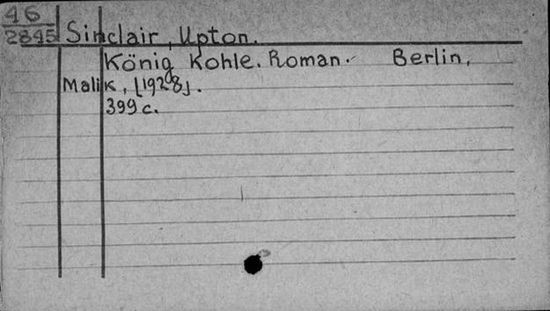 46
2845
Sinclair, Upton.
König Kohle. Roman. Berlin,
Malik, [1928].
399 c.